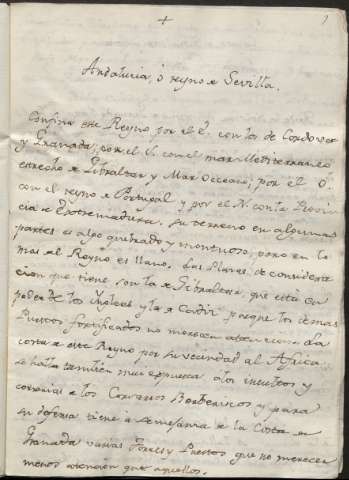 +
1
Andalucia, ó reyno de Sevilla.
Confina este Reyno por el E. con los de Cordova
y Granada; por el S. con el mar Mediterraneo
estrecho de Gibraltar y Mar Occeano; por el O.
con el reyno de Portugal y por el N. con la Provin
cia de Extremadura. Su terreno en algunas
partes es algo quebrado y montuoso, pero en lo
mas del Reyno es llano. Las Plazas de considera
cion que tiene son la de Gibraltar, que está en
poder de los Yngleses y la de Cadiz porque los demas
Puertos fortificados no merecen atencion. La
costa de este Reyno por su vecindad al Africa
se halla tambien muy expuesta á los insultos y
correrias de los Corsarios Berberiscos y para
su defensa tiene á semejanza de la Costa de
Granada varias Torres y Puestos que no merecen
menos atencion que aquellos.